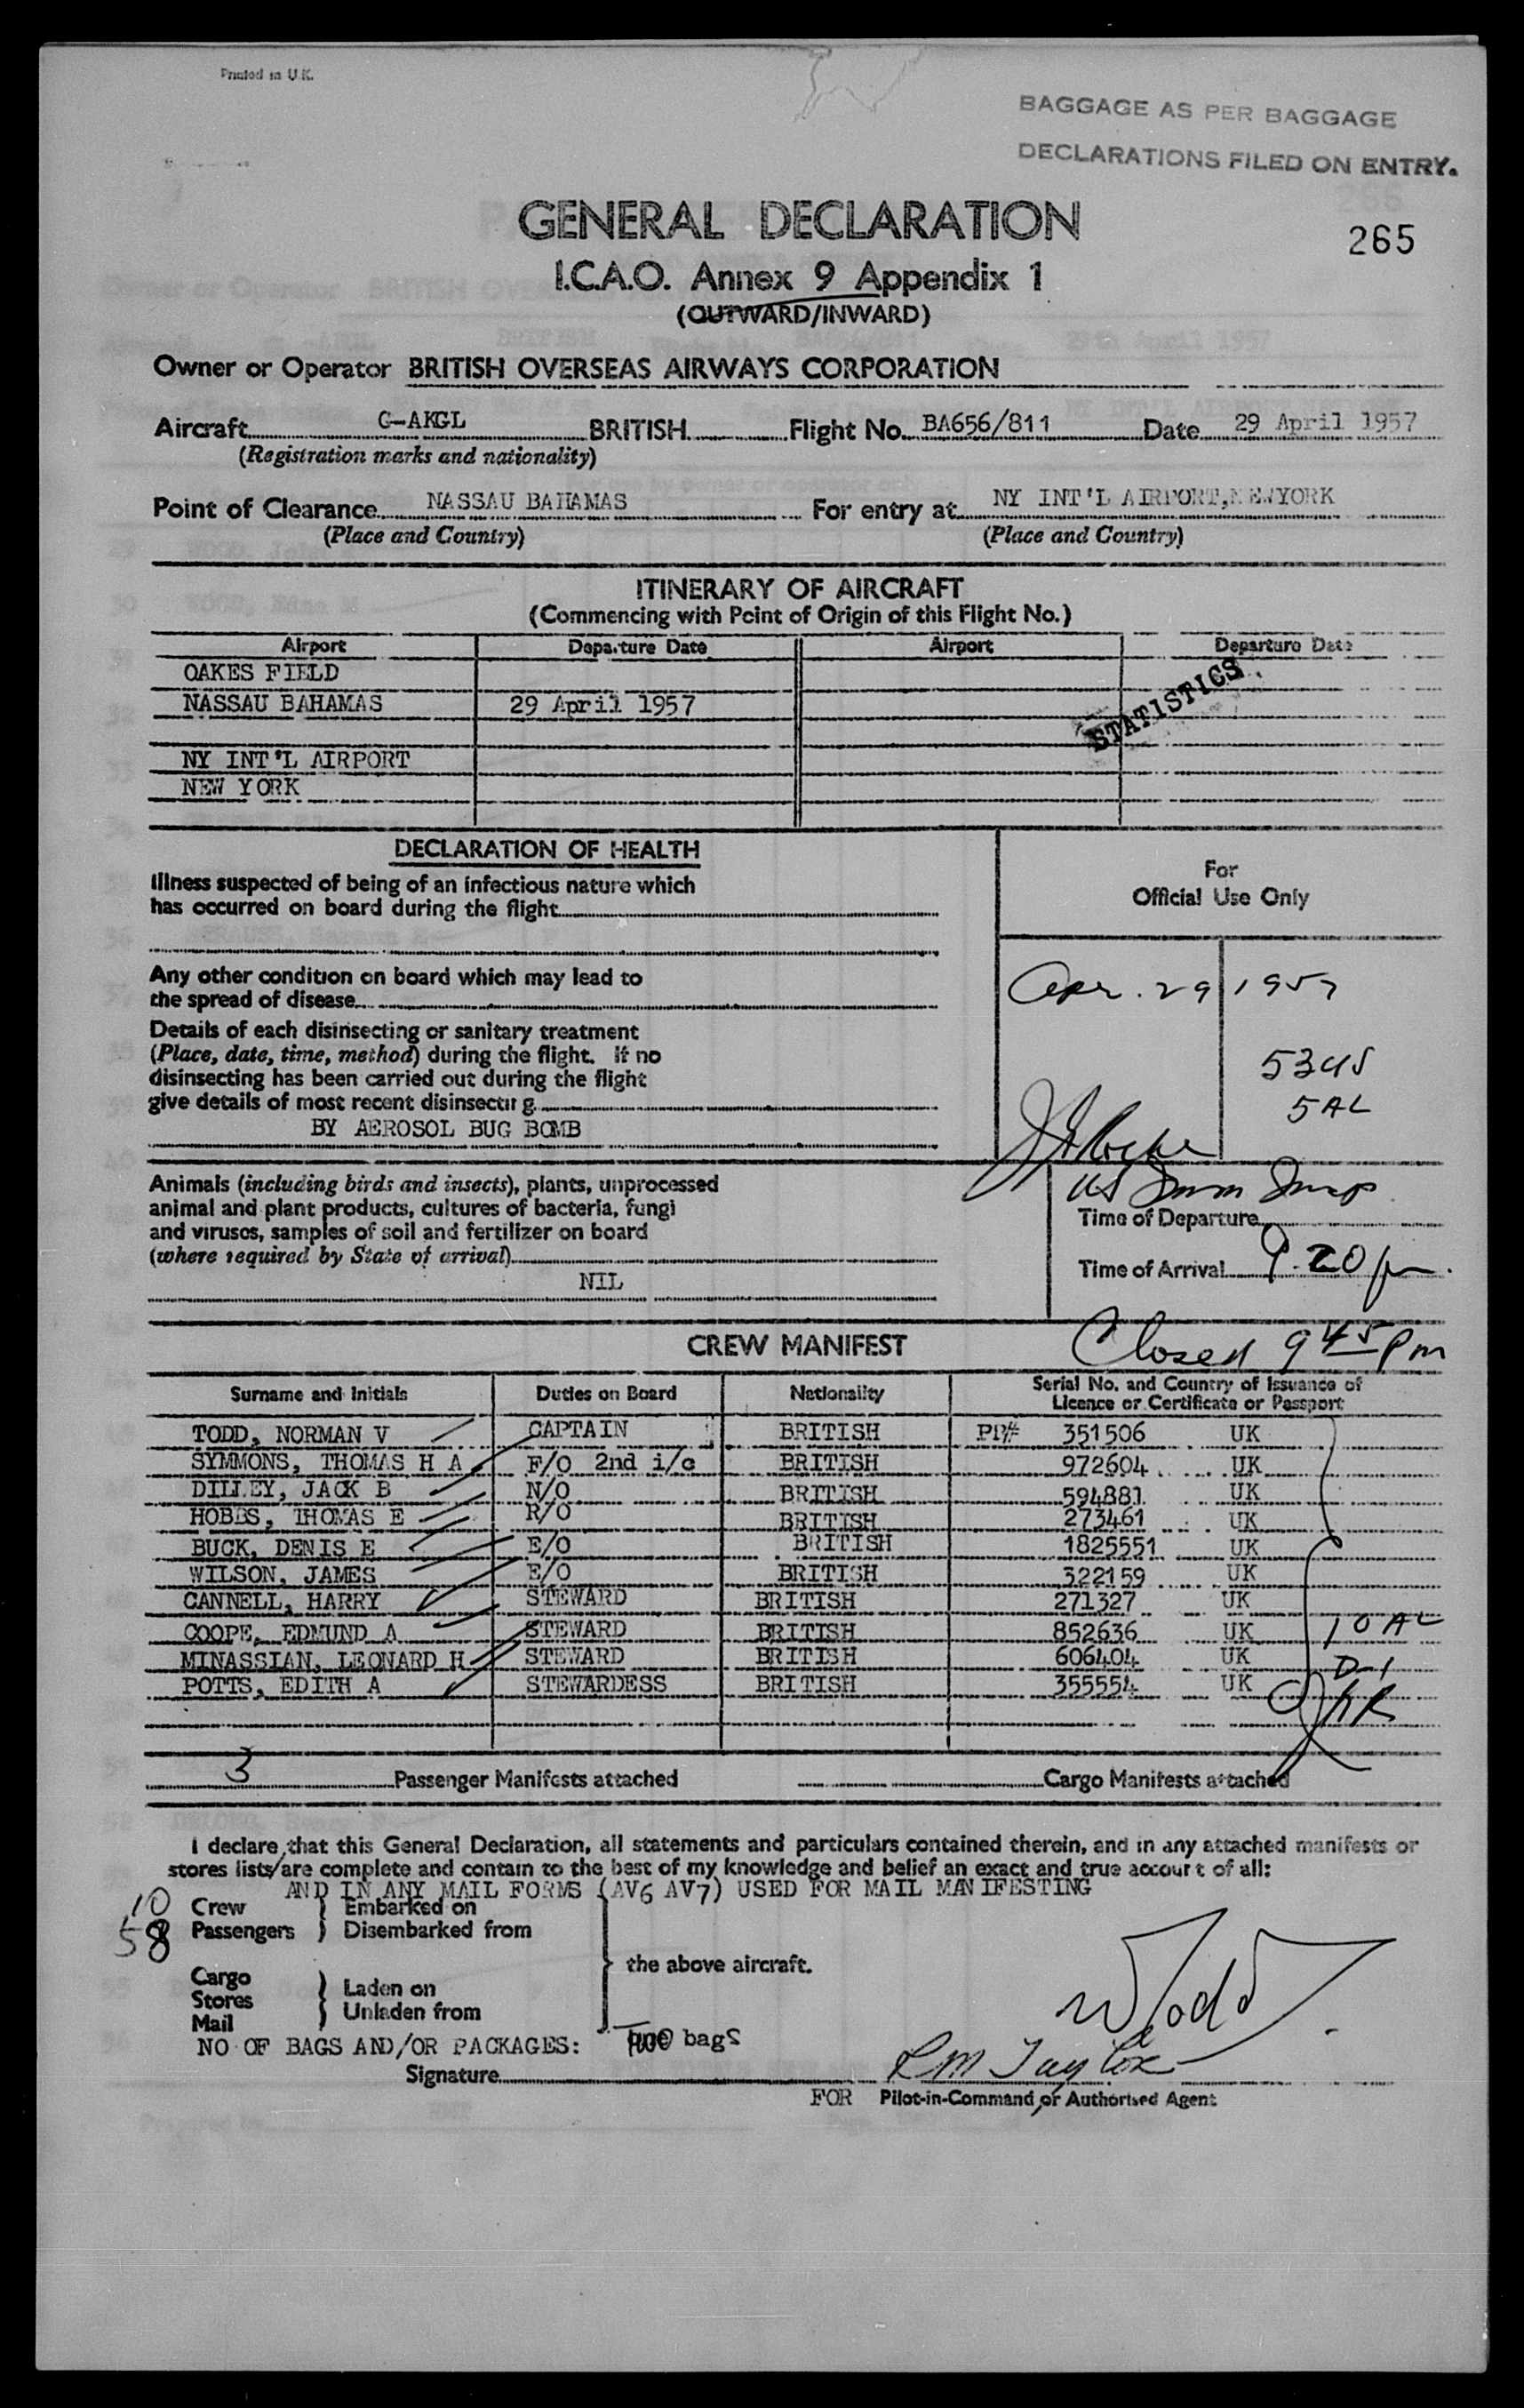 Printed in U.K.
BAGGAGE AS PER BAGGAGE
DECLARATIONS FILED ON ENTRY.
GENERAL DECLARATION
265
I.C.A.O. Annex 9 Appendix 1
(OUTWARD/INWARD)
Owner or Operator BRITISH OVERSEAS AIRWAYS CORPORATION
Aircraft G-AKGL BRITISH Flight No. BA656/811 Date 29 April 1957
(Registration marks and nationality)
Point of Clearance NASSAU BAHAMAS For entry at NY INT'L AIRPORT, NEWYORK
(Place and Country) (Place and Country)
ITINERARY OF AIRCRAFT
(Commencing with Point of Origin of this Flight No.)
Airport Departure Date Airport Departure Date
OAKES FIELD
NASSAU BAHAMAS 29 April 1957
STATISTICS
NY INT'L AIRPORT
NEW YORK
DECLARATION OF HEALTH
Illness suspected of being of an infectious nature which
has occurred on board during the flight
For
Official Use Only
Any other condition on board which may lead to
the spread of disease
Apr. 29 1957
Details of each disinsecting or sanitary treatment
(Place, date, time, method) during the flight. If no
disinsecting has been carried out during the flight
give details of most recent disinsecting
BY AEROSOL BUG BOMB
5 AL
Animals (including birds and insects), plants, unprocessed
animal and plant products, cultures of bacteria, fungi
and viruses, samples of soil and fertilizer on board
(where required by State of arrival)
NIL
US Imm Insp
Time of Departure
Time of Arrival 9.20 pm.
Closed 9 45 Pm
CREW MANIFEST
Surname and Initials Duties on Board Nationality Serial No. and Country of Issuance of
Licence or Certificate or Passport
TODD, NORMAN V CAPTAIN BRITISH PP# 351506 UK
SYMMONS, THOMAS H A F/O 2nd i/c BRITISH 972604 UK
DILLEY, JACK B N/O BRITISH 594881 UK
HOBBS, THOMAS E R/O BRITISH 273461 UK
BUCK, DENIS E E/O BRITISH 1825551 UK
WILSON, JAMES E/O BRITISH 322159 UK
CANNELL, HARRY STEWARD BRITISH 271327 UK
COOPE, EDMUND A STEWARD BRITISH 852636 UK 10 AL
MINASSIAN, LEONARD H STEWARD BRITISH 606404 UK D-1
POTTS, EDITH A STEWARDESS BRITISH 355554 UK
3 Passenger Manifests attached Cargo Manifests attached
I declare that this General Declaration, all statements and particulars contained therein, and in any attached manifests or
stores lists/are complete and contain to the best of my knowledge and belief an exact and true account of all:
AND IN ANY MAIL FORMS (AV6 AV7) USED FOR MAIL MANIFESTING
10 Crew Embarked on
58 Passengers Disembarked from
the above aircraft.
Cargo
Stores Laden on
Mail Unladen from
NO OF BAGS AND/OR PACKAGES: bags
Todd
R M Taylor
Signature
FOR Pilot-in-Command or Authorised Agent